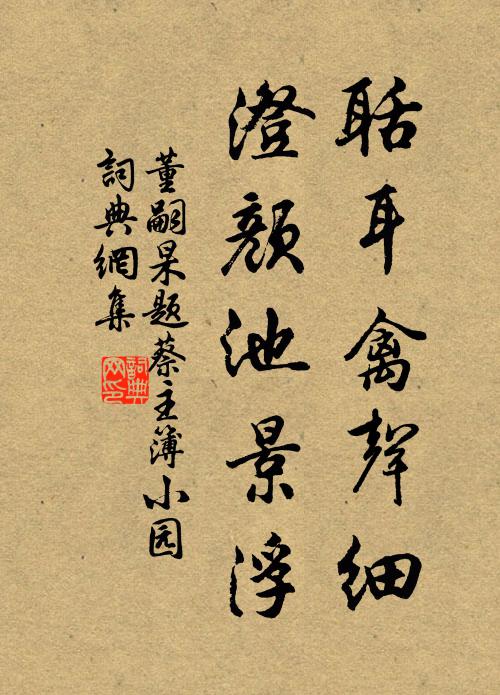 聒耳禽聲細
澄顏池景浮
董嗣杲题蔡主簿小园
詞典網集
詞典網印